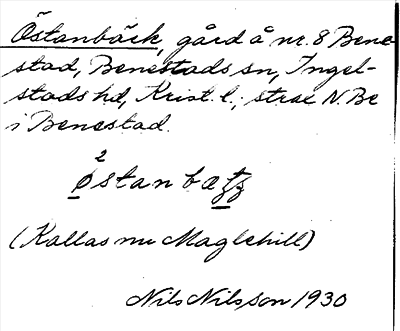 Östanbäck, gård å nr. 8 Bene-
stad, Benestads sn, Ingel-
stads hd, Krist. l.; strax N. Be
i Benestad.
(Kallas nu Maglehill)
Nils Nilsson 1930